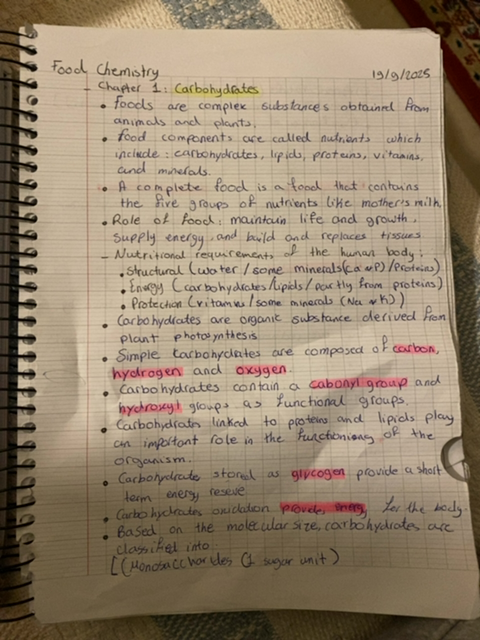 Food Chemistry 19/9/2025
- Chapter 1: Carbohydrates
• Foods are complex substances obtained from
animals and plants.
• Food components are called nutrients which
include: carbohydrates, lipids, proteins, vitamins,
and minerals.
• A complete food is a food that contains
the five groups of nutrients like mother's milk.
• Role of food: maintain life and growth,
supply energy, and build and replaces tissues.
- Nutritional requirements of the human body:
• Structural (water/some minerals(Ca & P)/Proteins)
• Energy (carbohydrates/lipids/partly from proteins)
• Protection (vitamins/some minerals (Na & K))
• Carbohydrates are organic substance derived from
plant photosynthesis
• Simple Carbohydrates are composed of carbon,
hydrogen and oxygen.
• Carbohydrates contain a cabonyl group and
hydroxyl groups as functional groups.
• Carbohydrates linked to proteins and lipids play
an important role in the functioning of the
organism.
• Carbohydrates stored as glycogen provide a short
term energy reseve
• Carbohydrates oxidation provide, energy, for the body.
• Based on the molecular size, carbohydrates are
classified into:
[(Monosaccharides (1 sugar unit)